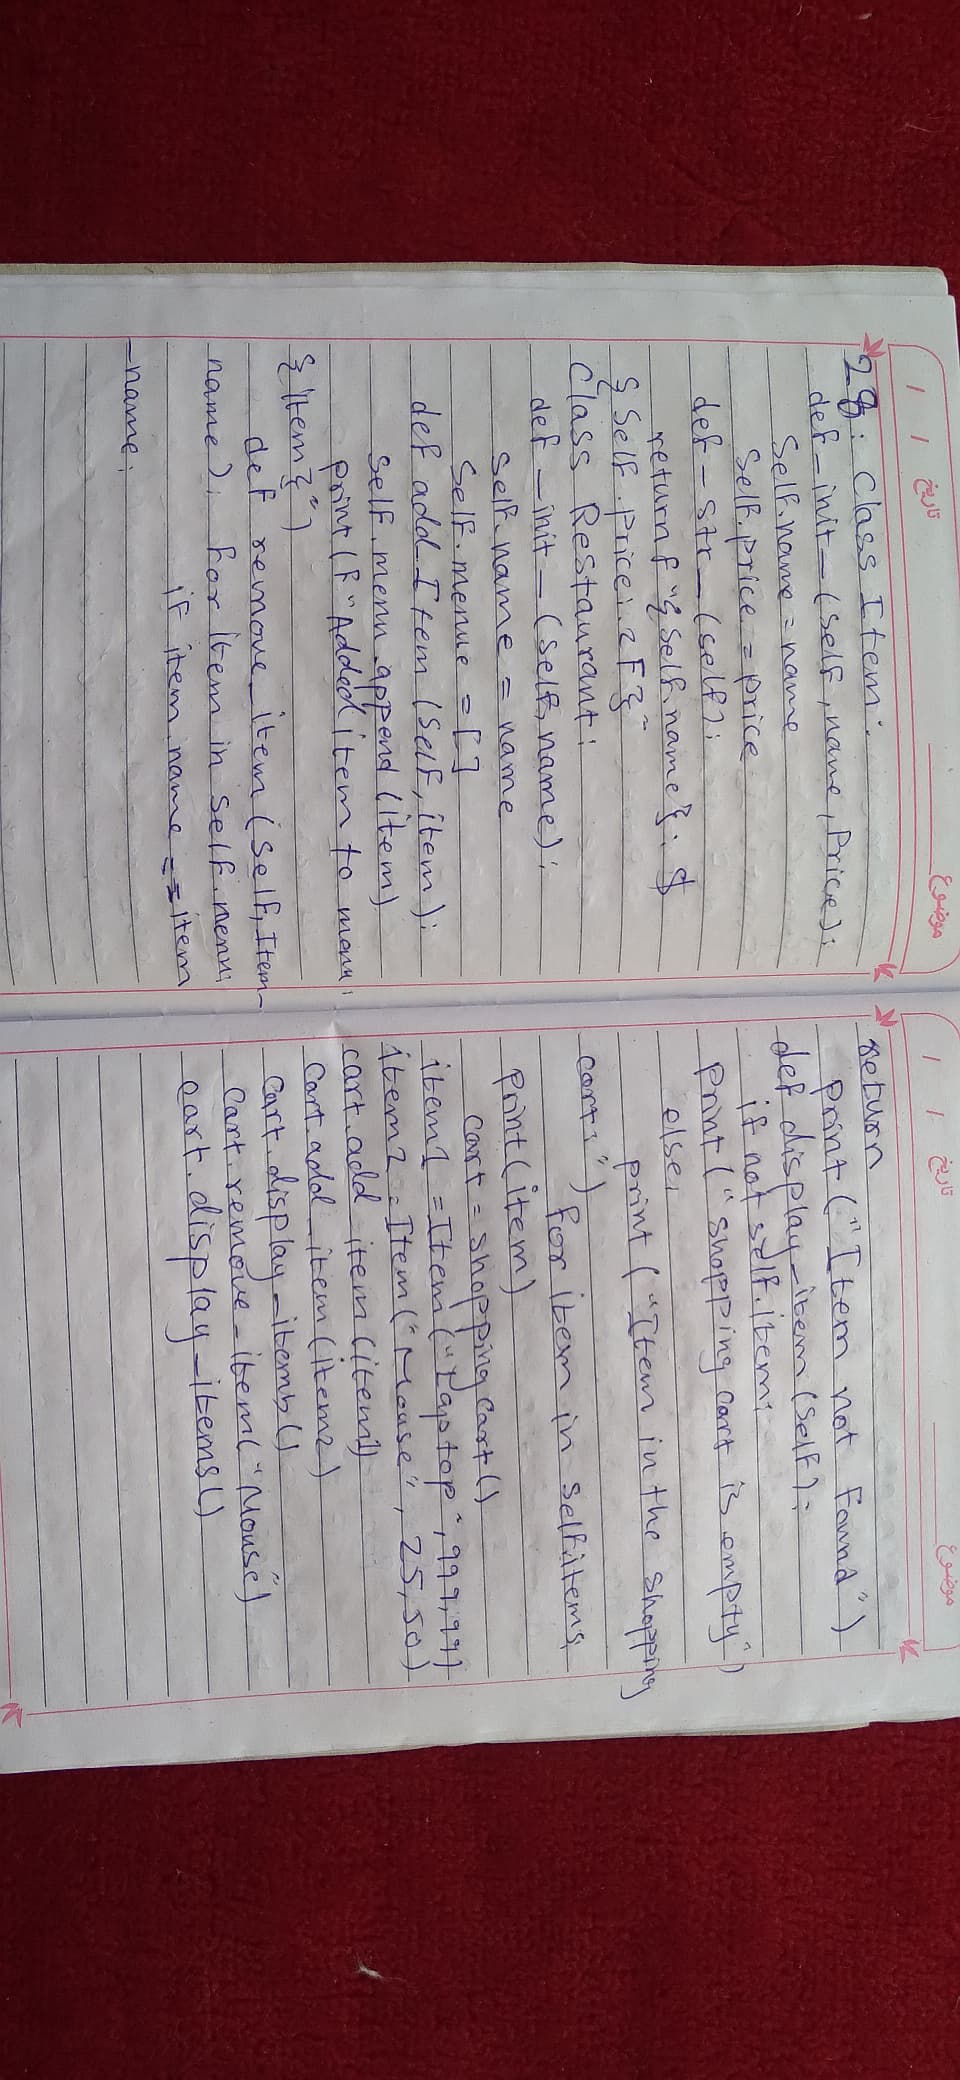 تاریخ / /
موضوع
28: Class Item:
def_init_(self, name, Price):
Self.name = name
Self.price = price
def_str_(self):
return f"{self.name}: $
{Self.price:.2F}"
Class Restaurant:
def_init_(self, name):
self.name = name
Self.menue = []
def add_Item (self, item):
self.menu.append(item)
print(f"Added item to menu:
{item}")
def remove_item (self, Item_
name): for item in self.menu:
if item.name == item
_name:
تاریخ / /
موضوع
return
print("Item not found")
def display_item (self):
if not self.item:
print("shopping cart is empty")
else:
print("Item in the shopping
cart:")
for item in self.items
print(item)
cart = shopping cart()
item1 = Item("Laptop", 999,99)
item2 = Item("Mouse", 25,50)
cart.add_item(item1)
Cart.add_item(item2)
Cart.display_items()
Cart.remove_item("Mouse")
cart.display_items()